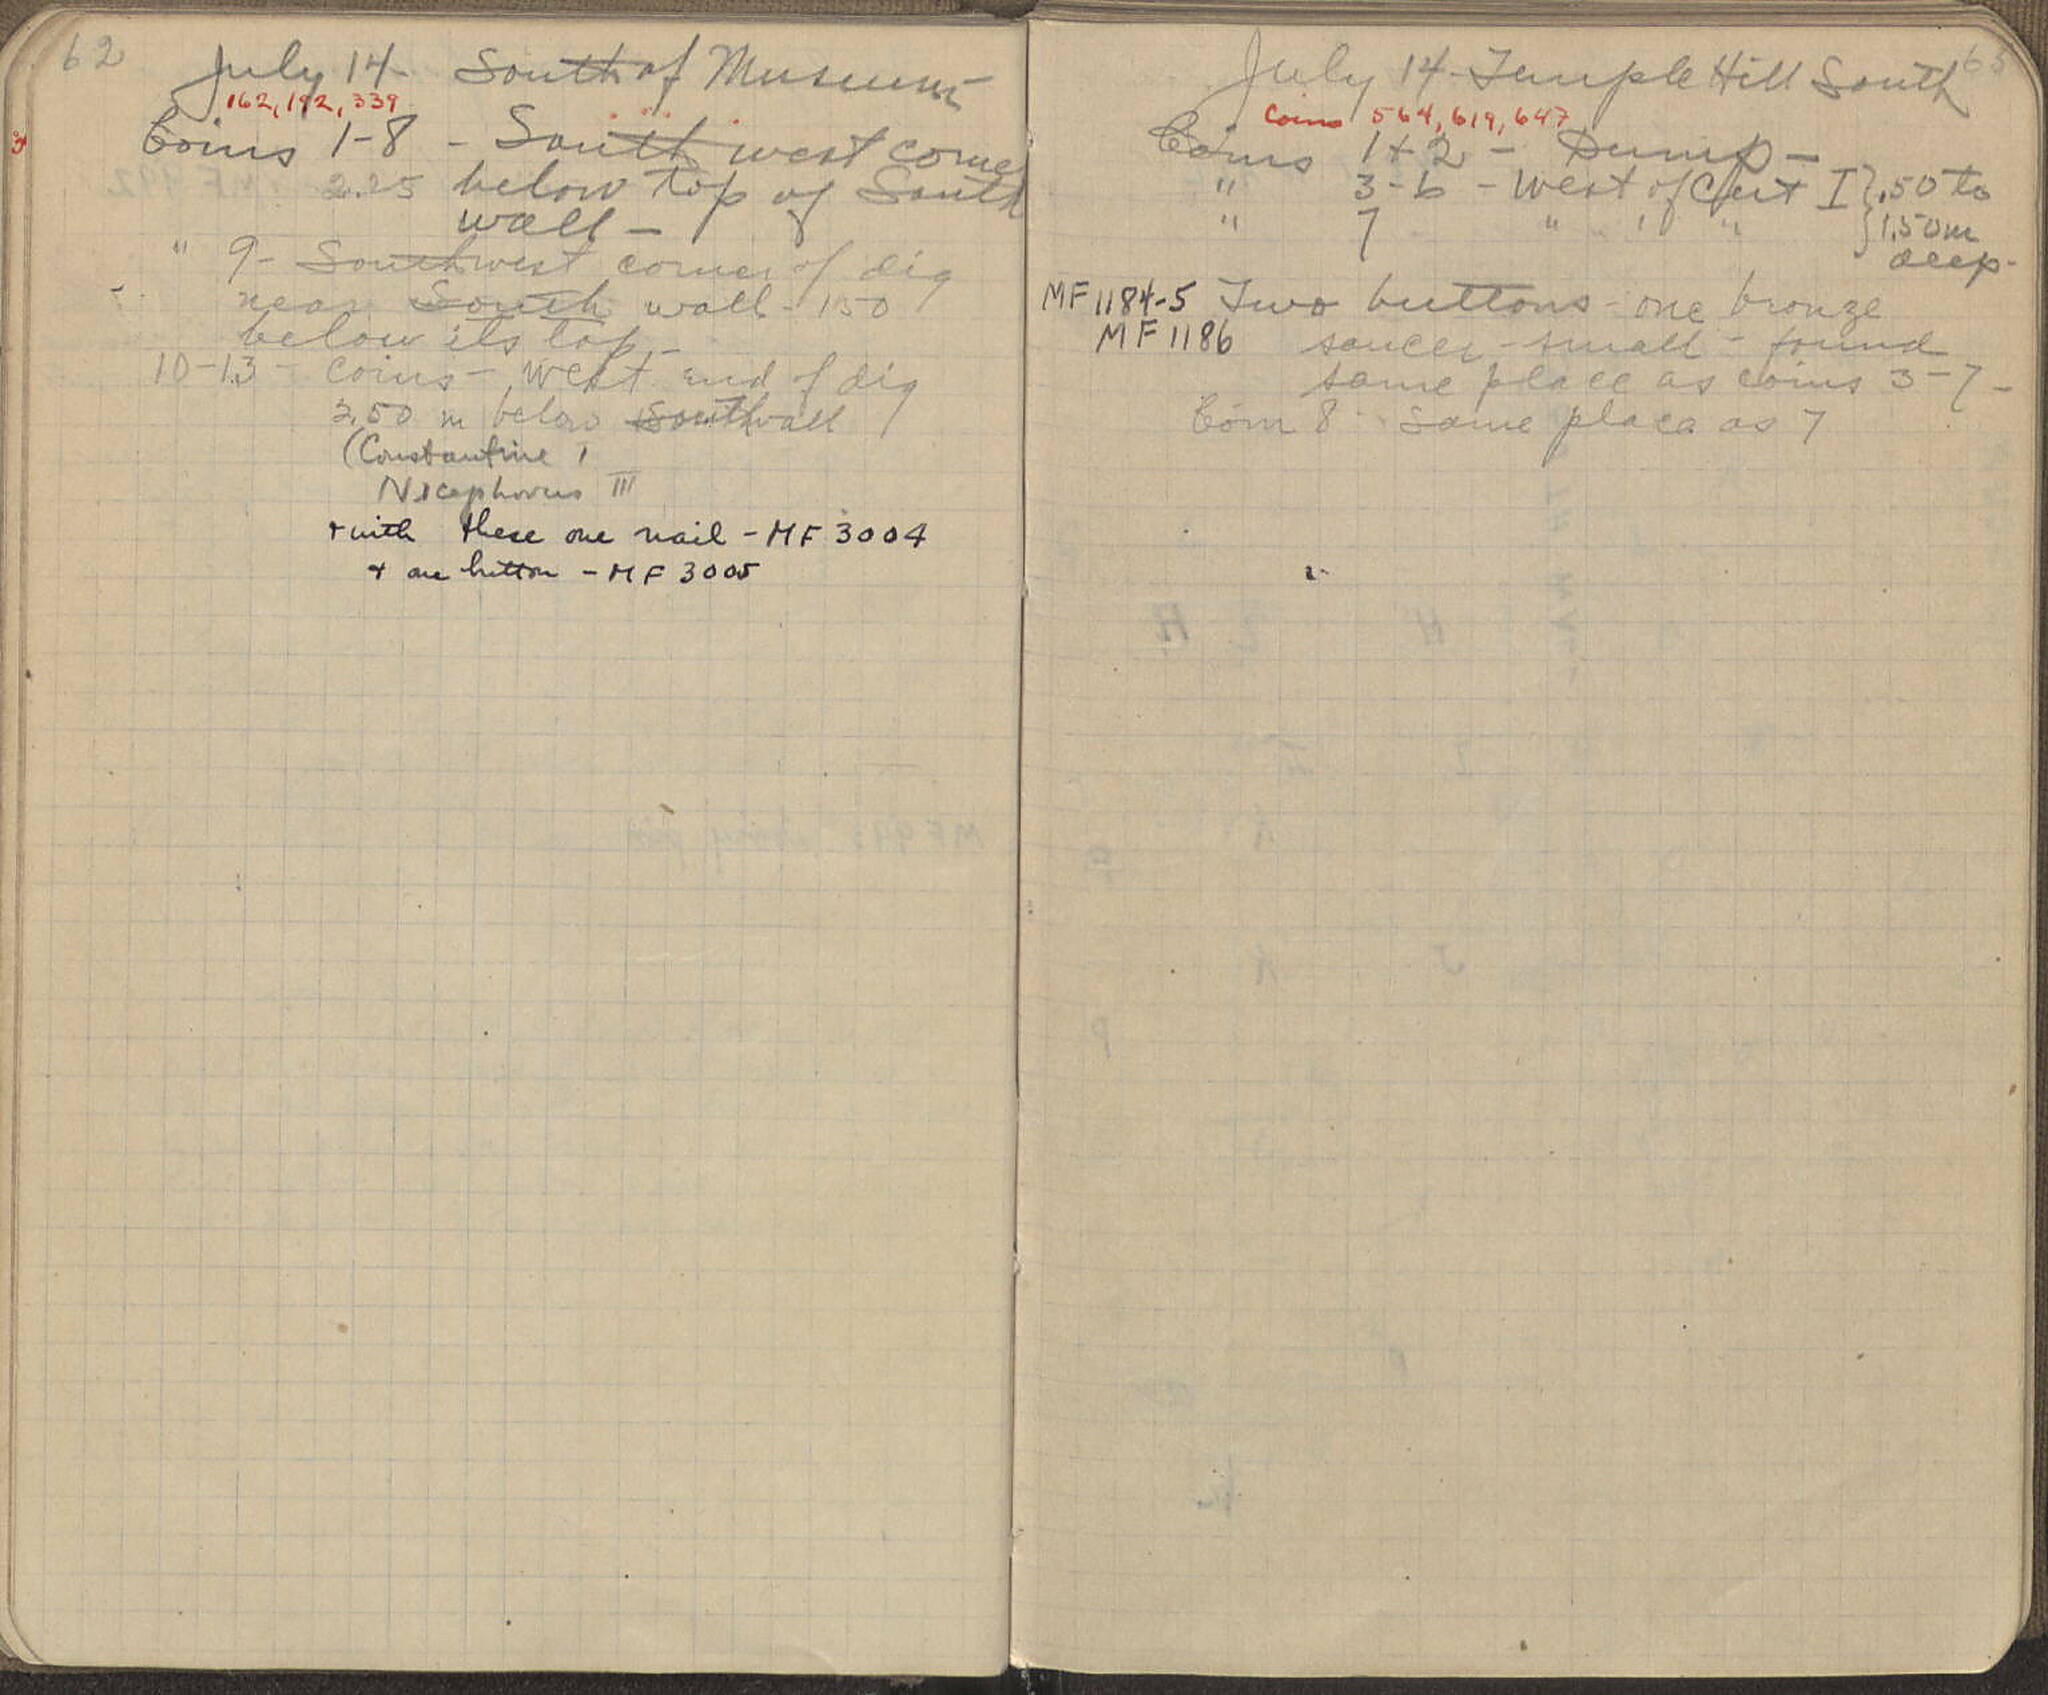 62
July 14 - South of Museum
162, 192, 339
Coins 1-8 - South west corner
2.25 below top of South
wall -
" 9 - Southwest corner of dig
near South wall - 150
below its top -
10-13 - coins - West end of dig
2.50 m below South wall
(Constantine I
Nicephorus III
+ with these one nail - MF 3004
+ one button - MF 3005
63
July 14 - Temple Hill South
Coins 564, 619, 647
Coins 1 + 2 - Dump -
" 3-6 - West of Cut I } .50 to
" 7 " " " } 1.50 m
deep -
MF 1184-5 Two buttons - one bronze
MF 1186 saucer - small - found
same place as coins 3-7 -
Coin 8 - Same place as 7